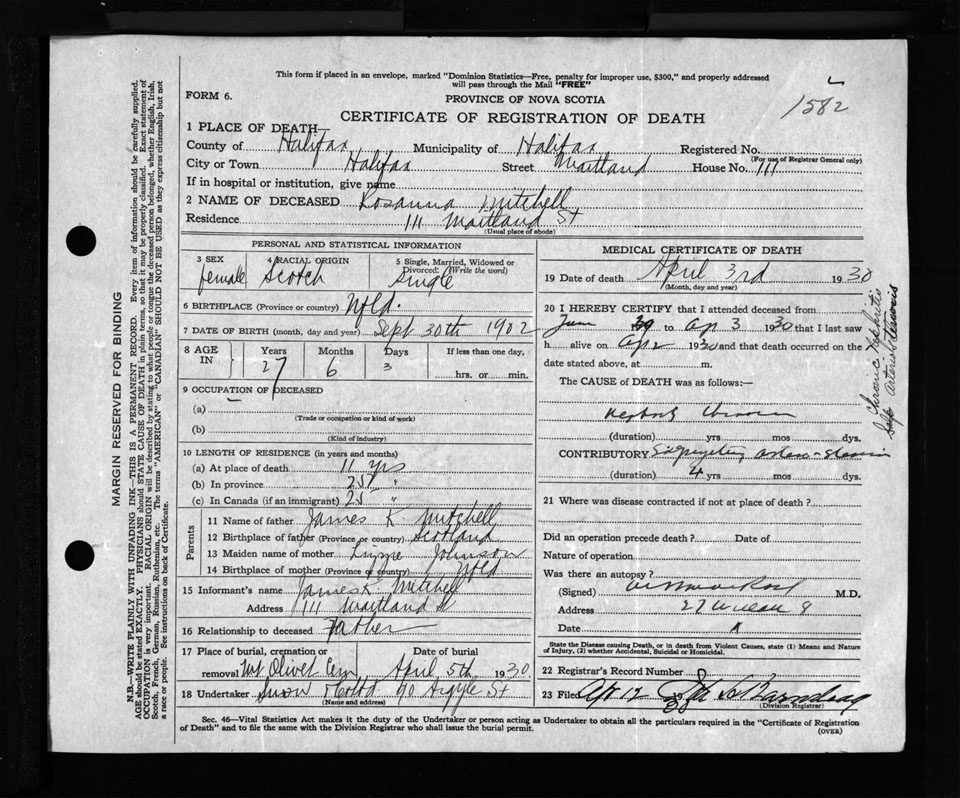 This form if placed in an envelope, marked "Dominion Statistics—Free, penalty for improper use, $300," and properly addressed
will pass through the Mail "FREE"
1582
FORM 6.
PROVINCE OF NOVA SCOTIA
CERTIFICATE OF REGISTRATION OF DEATH
1 PLACE OF DEATH—
County of Halifax Municipality of Halifax Registered No.
(For use of Registrar General only)
City or Town Halifax Street Maitland House No. 111
If in hospital or institution, give name
2 NAME OF DECEASED Rosanna Mitchell
Residence 111 Maitland St
(Usual place of abode)
PERSONAL AND STATISTICAL INFORMATION
3 SEX female 4 RACIAL ORIGIN Scotch 5 Single, Married, Widowed or
Divorced: (Write the word) Single
6 BIRTHPLACE (Province or country) Nfld.
7 DATE OF BIRTH (month, day and year) Sept 30th 1902
8 AGE IN Years 27 Months 6 Days 3 If less than one day,
hrs. or min.
9 OCCUPATION OF DECEASED
(a)
(Trade or occupation or kind of work)
(b)
(Kind of industry)
10 LENGTH OF RESIDENCE (in years and months)
(a) At place of death 11 yrs
(b) In province 25 "
(c) In Canada (if an immigrant) 25 "
Parents
11 Name of father James K Mitchell
12 Birthplace of father (Province or country) Scotland
13 Maiden name of mother Lizzie Johnson
14 Birthplace of mother (Province or country) Nfld
15 Informant's name James K Mitchell
Address 111 Maitland St
16 Relationship to deceased Father
17 Place of burial, cremation or
removal Mt Olivet Cem
Date of burial
April 5th 1930
18 Undertaker Snow & Co Ltd 90 Argyle St
(Name and address)
MEDICAL CERTIFICATE OF DEATH
19 Date of death April 3rd 1930
(Month, day and year)
20 I HEREBY CERTIFY that I attended deceased from
to Ap 3 1930 that I last saw
h alive on Ap 2 1930 and that death occurred on the
date stated above, at m.
The CAUSE of DEATH was as follows:—
(duration) yrs mos dys.
CONTRIBUTORY
(duration) 4 yrs mos dys.
Chronic Nephritis
Arterio Sclerosis
21 Where was disease contracted if not at place of death?
Did an operation precede death? Date of
Nature of operation
Was there an autopsy?
(Signed) M.D.
Address
Date
State the Disease causing Death, or in death from Violent Causes, state (1) Means and Nature
of Injury, (2) whether Accidental, Suicidal or Homicidal.
22 Registrar's Record Number
23 Filed Apr 12 1930
(Division Registrar)
Sec. 46—Vital Statistics Act makes it the duty of the Undertaker or person acting as Undertaker to obtain all the particulars required in the "Certificate of Registration
of Death" and to file the same with the Division Registrar who shall issue the burial permit.
(OVER)
MARGIN RESERVED FOR BINDING
N.B.—WRITE PLAINLY WITH UNFADING INK—THIS IS A PERMANENT RECORD. Every item of information should be carefully supplied.
AGE should be stated EXACTLY. PHYSICIANS should STATE CAUSE OF DEATH in plain terms, so that it may be properly classified. Exact statement of
OCCUPATION is very important. RACIAL ORIGIN will be described by stating to what people or tongue the deceased person belonged, whether English, Irish,
Scotch, French, German, Russian, Ruthenian, etc. The terms "AMERICAN" or "CANADIAN" SHOULD NOT BE USED as they express citizenship but not
a race or people. See instructions on back of Certificate.